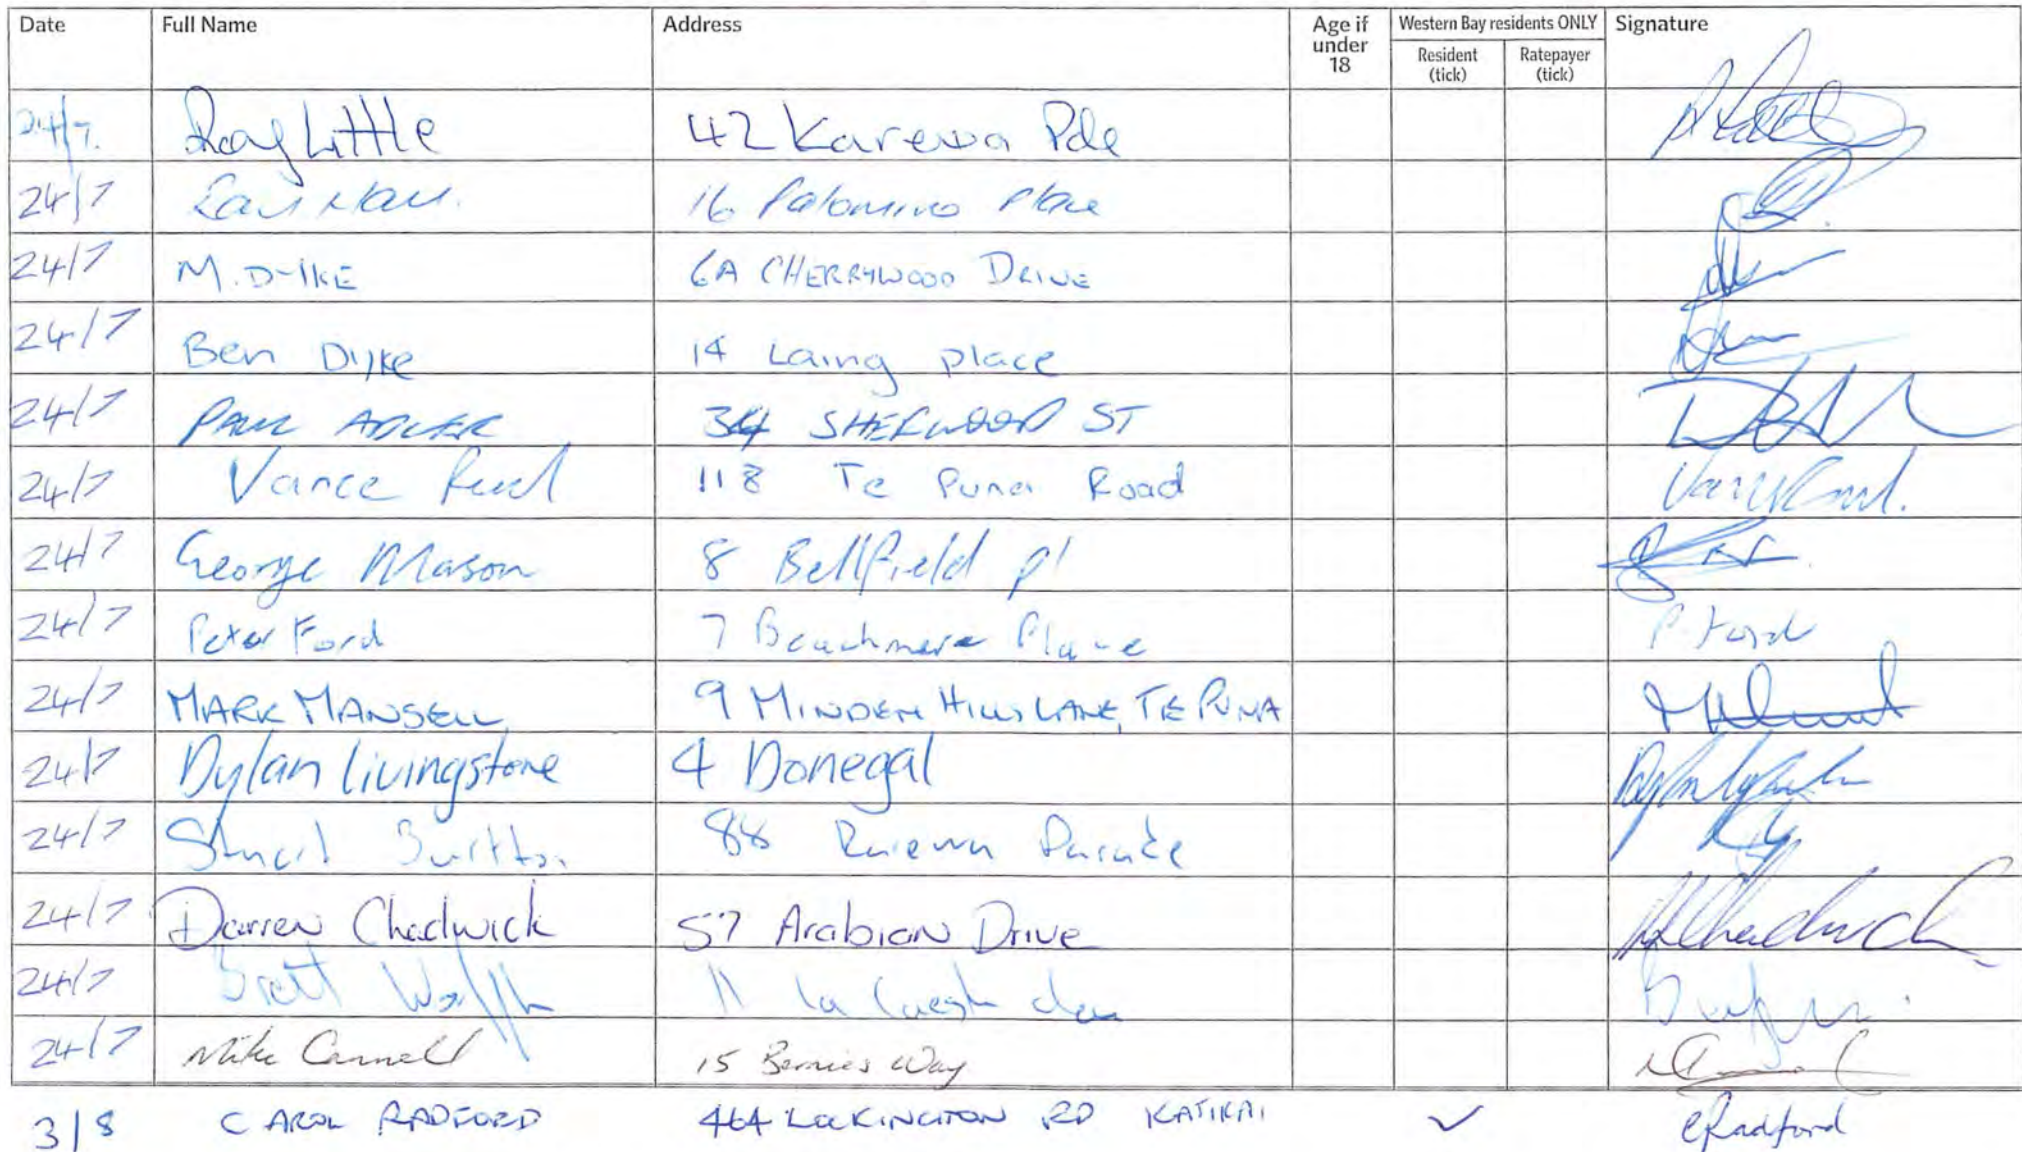 Date Full Name Address Age if under 18 Western Bay residents ONLY Signature
Resident (tick) Ratepayer (tick)
24/7. Ray Little 42 Karewa Pde
24/7 16 Palomino Place
24/7 M. DYKE 6A CHERRYWOOD DRIVE
24/7 Ben Dyke 14 Laing place
24/7 PAUL 34 SHERWOOD ST
24/7 Vance 118 Te Puna Road
24/7 George Mason 8 Bellfield pl
24/7 Peter Ford 7 Beachmere Place P. Ford
24/7 MARK MANSELL 9 MINDEN HILLS LANE, TE PUNA
24/7 Dylan Livingstone 4 Donegal
24/7 Stuart 88 Karewa Parade
24/7 Darren Chadwick 57 Arabian Drive Chadwick
24/7 Brett 11
24/7 Mike 15 Bernies Way
3/8 CAROL RADFORD 464 LOCKINGTON RD KATIKATI ✓ CRadford